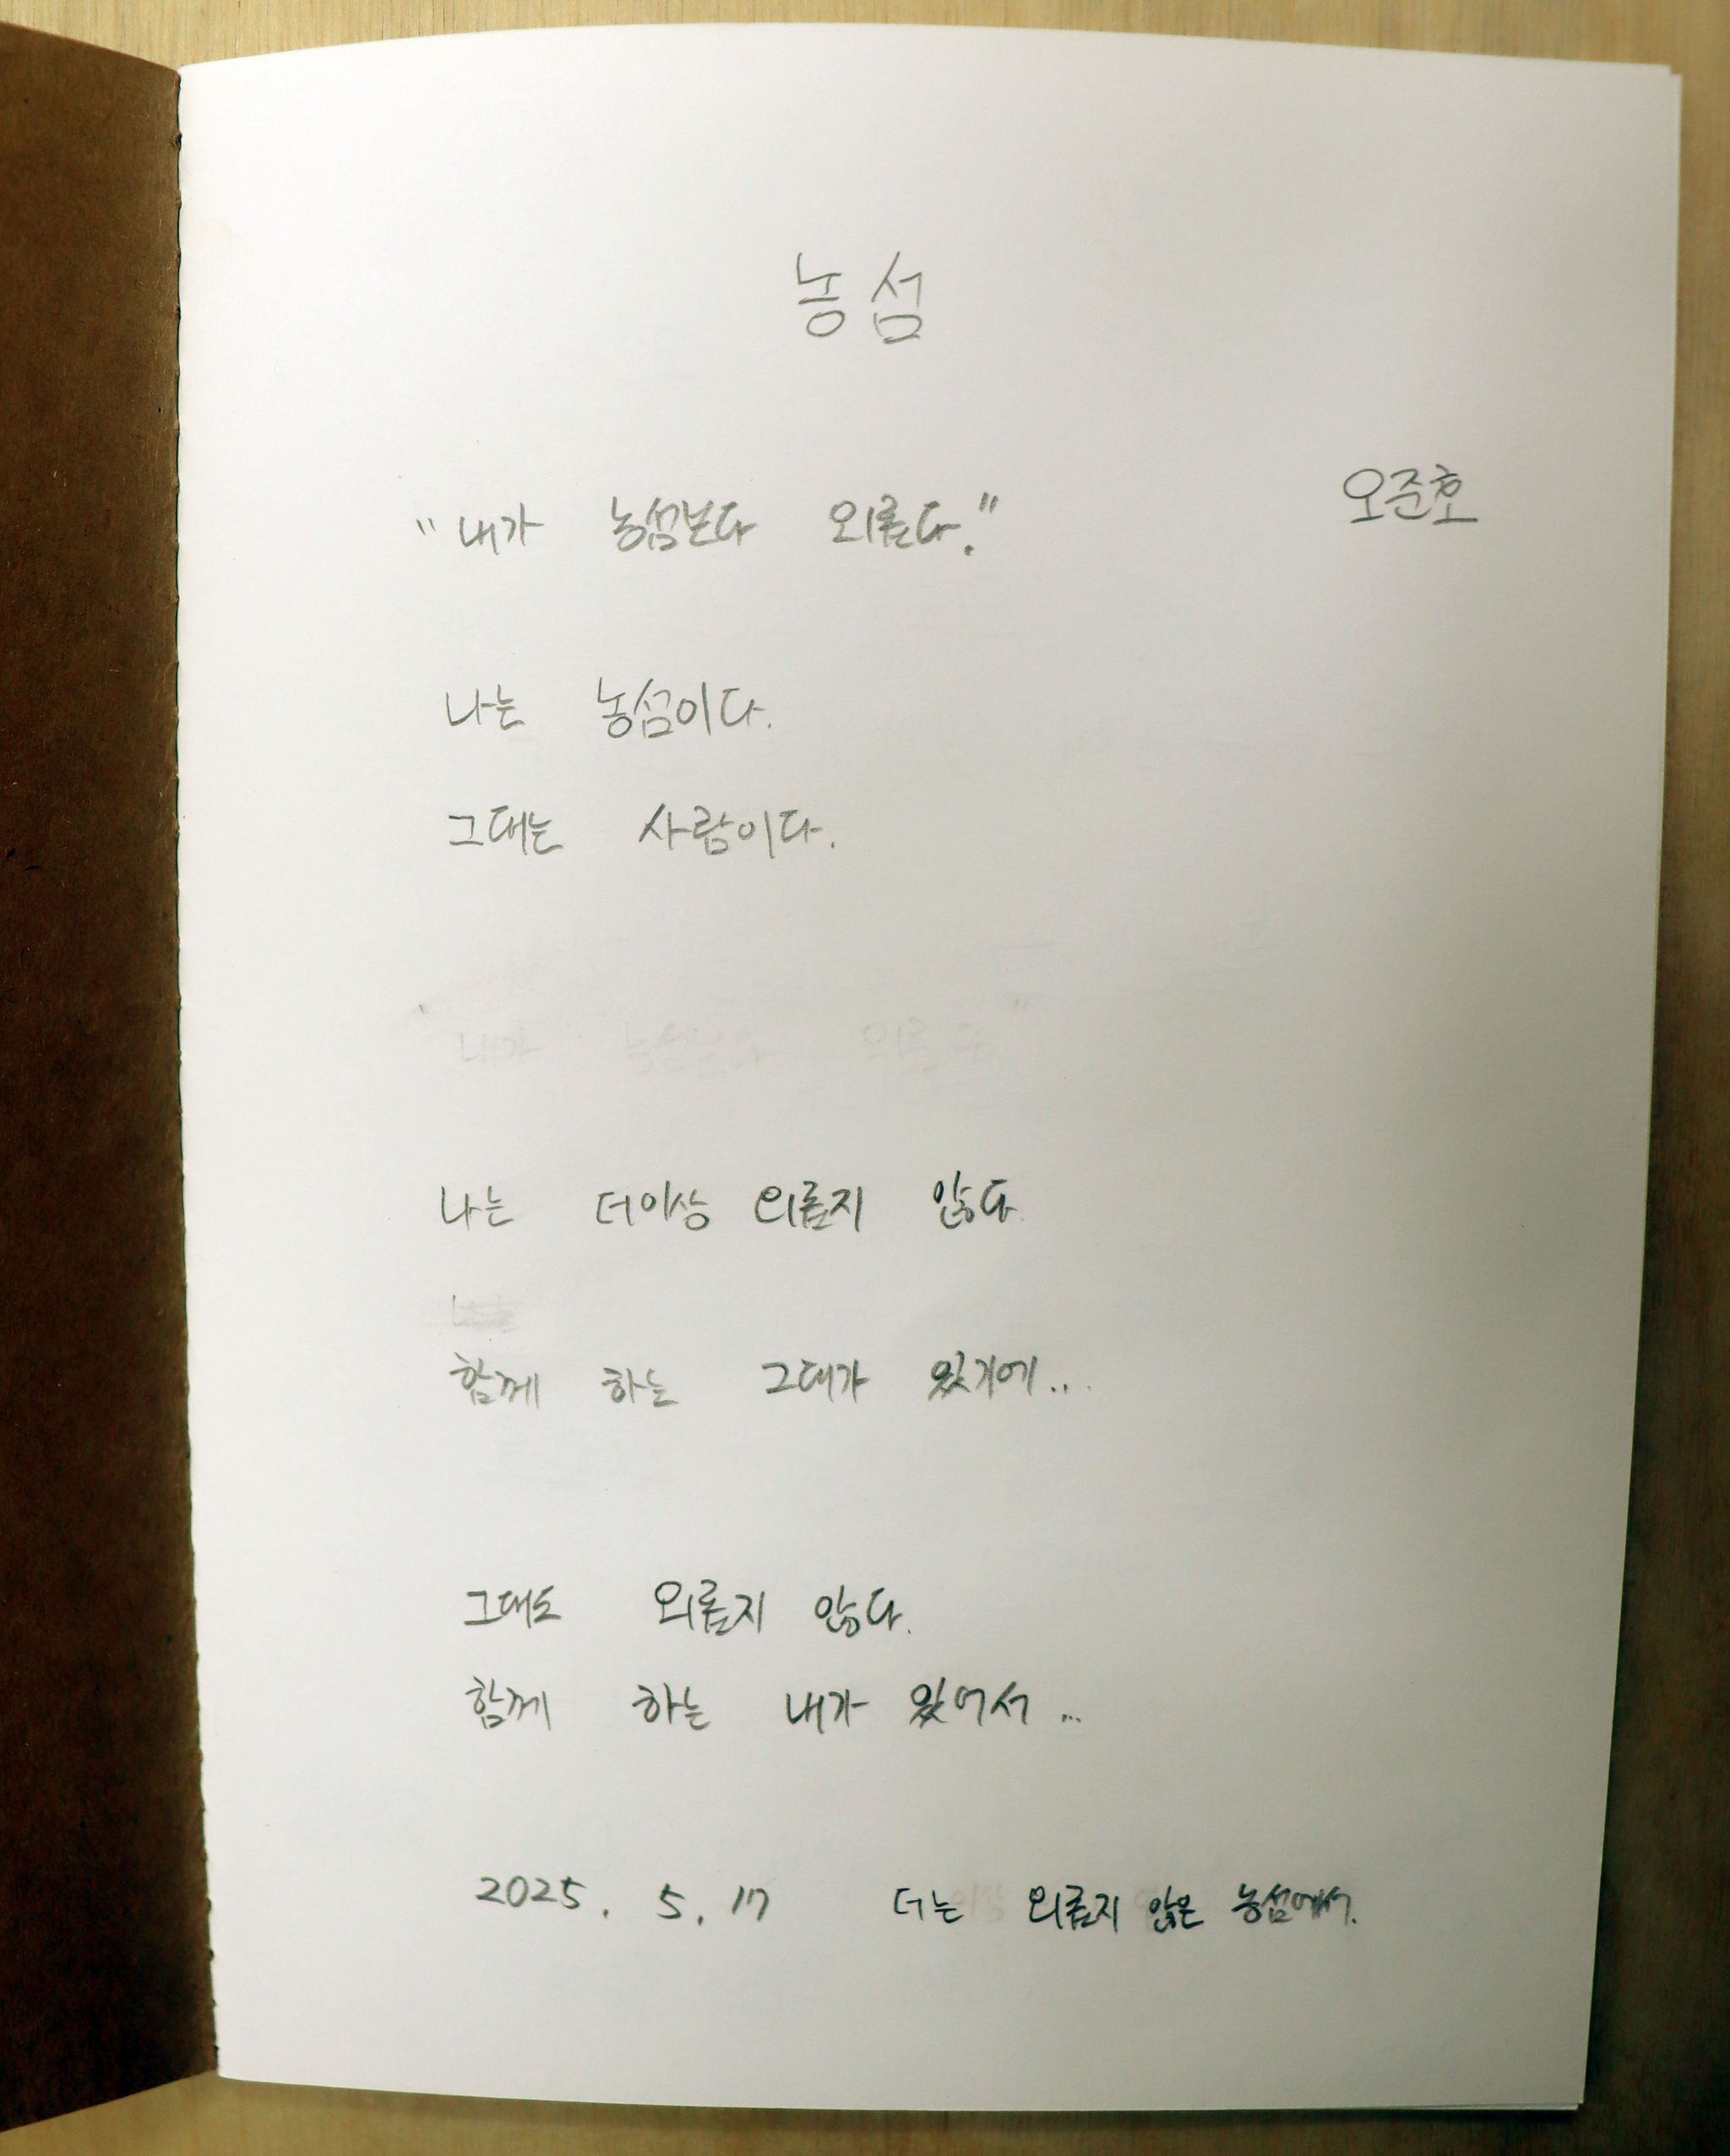 농섬
오준호
"내가 농섬보다 외롭다."
나는 농섬이다.
그대는 사람이다.
나는 더이상 외롭지 않다.
함께 하는 그대가 있기에...
그대도 외롭지 않다.
함께 하는 내가 있어서...
2025. 5. 17 더는 외롭지 않은 농섬에서.